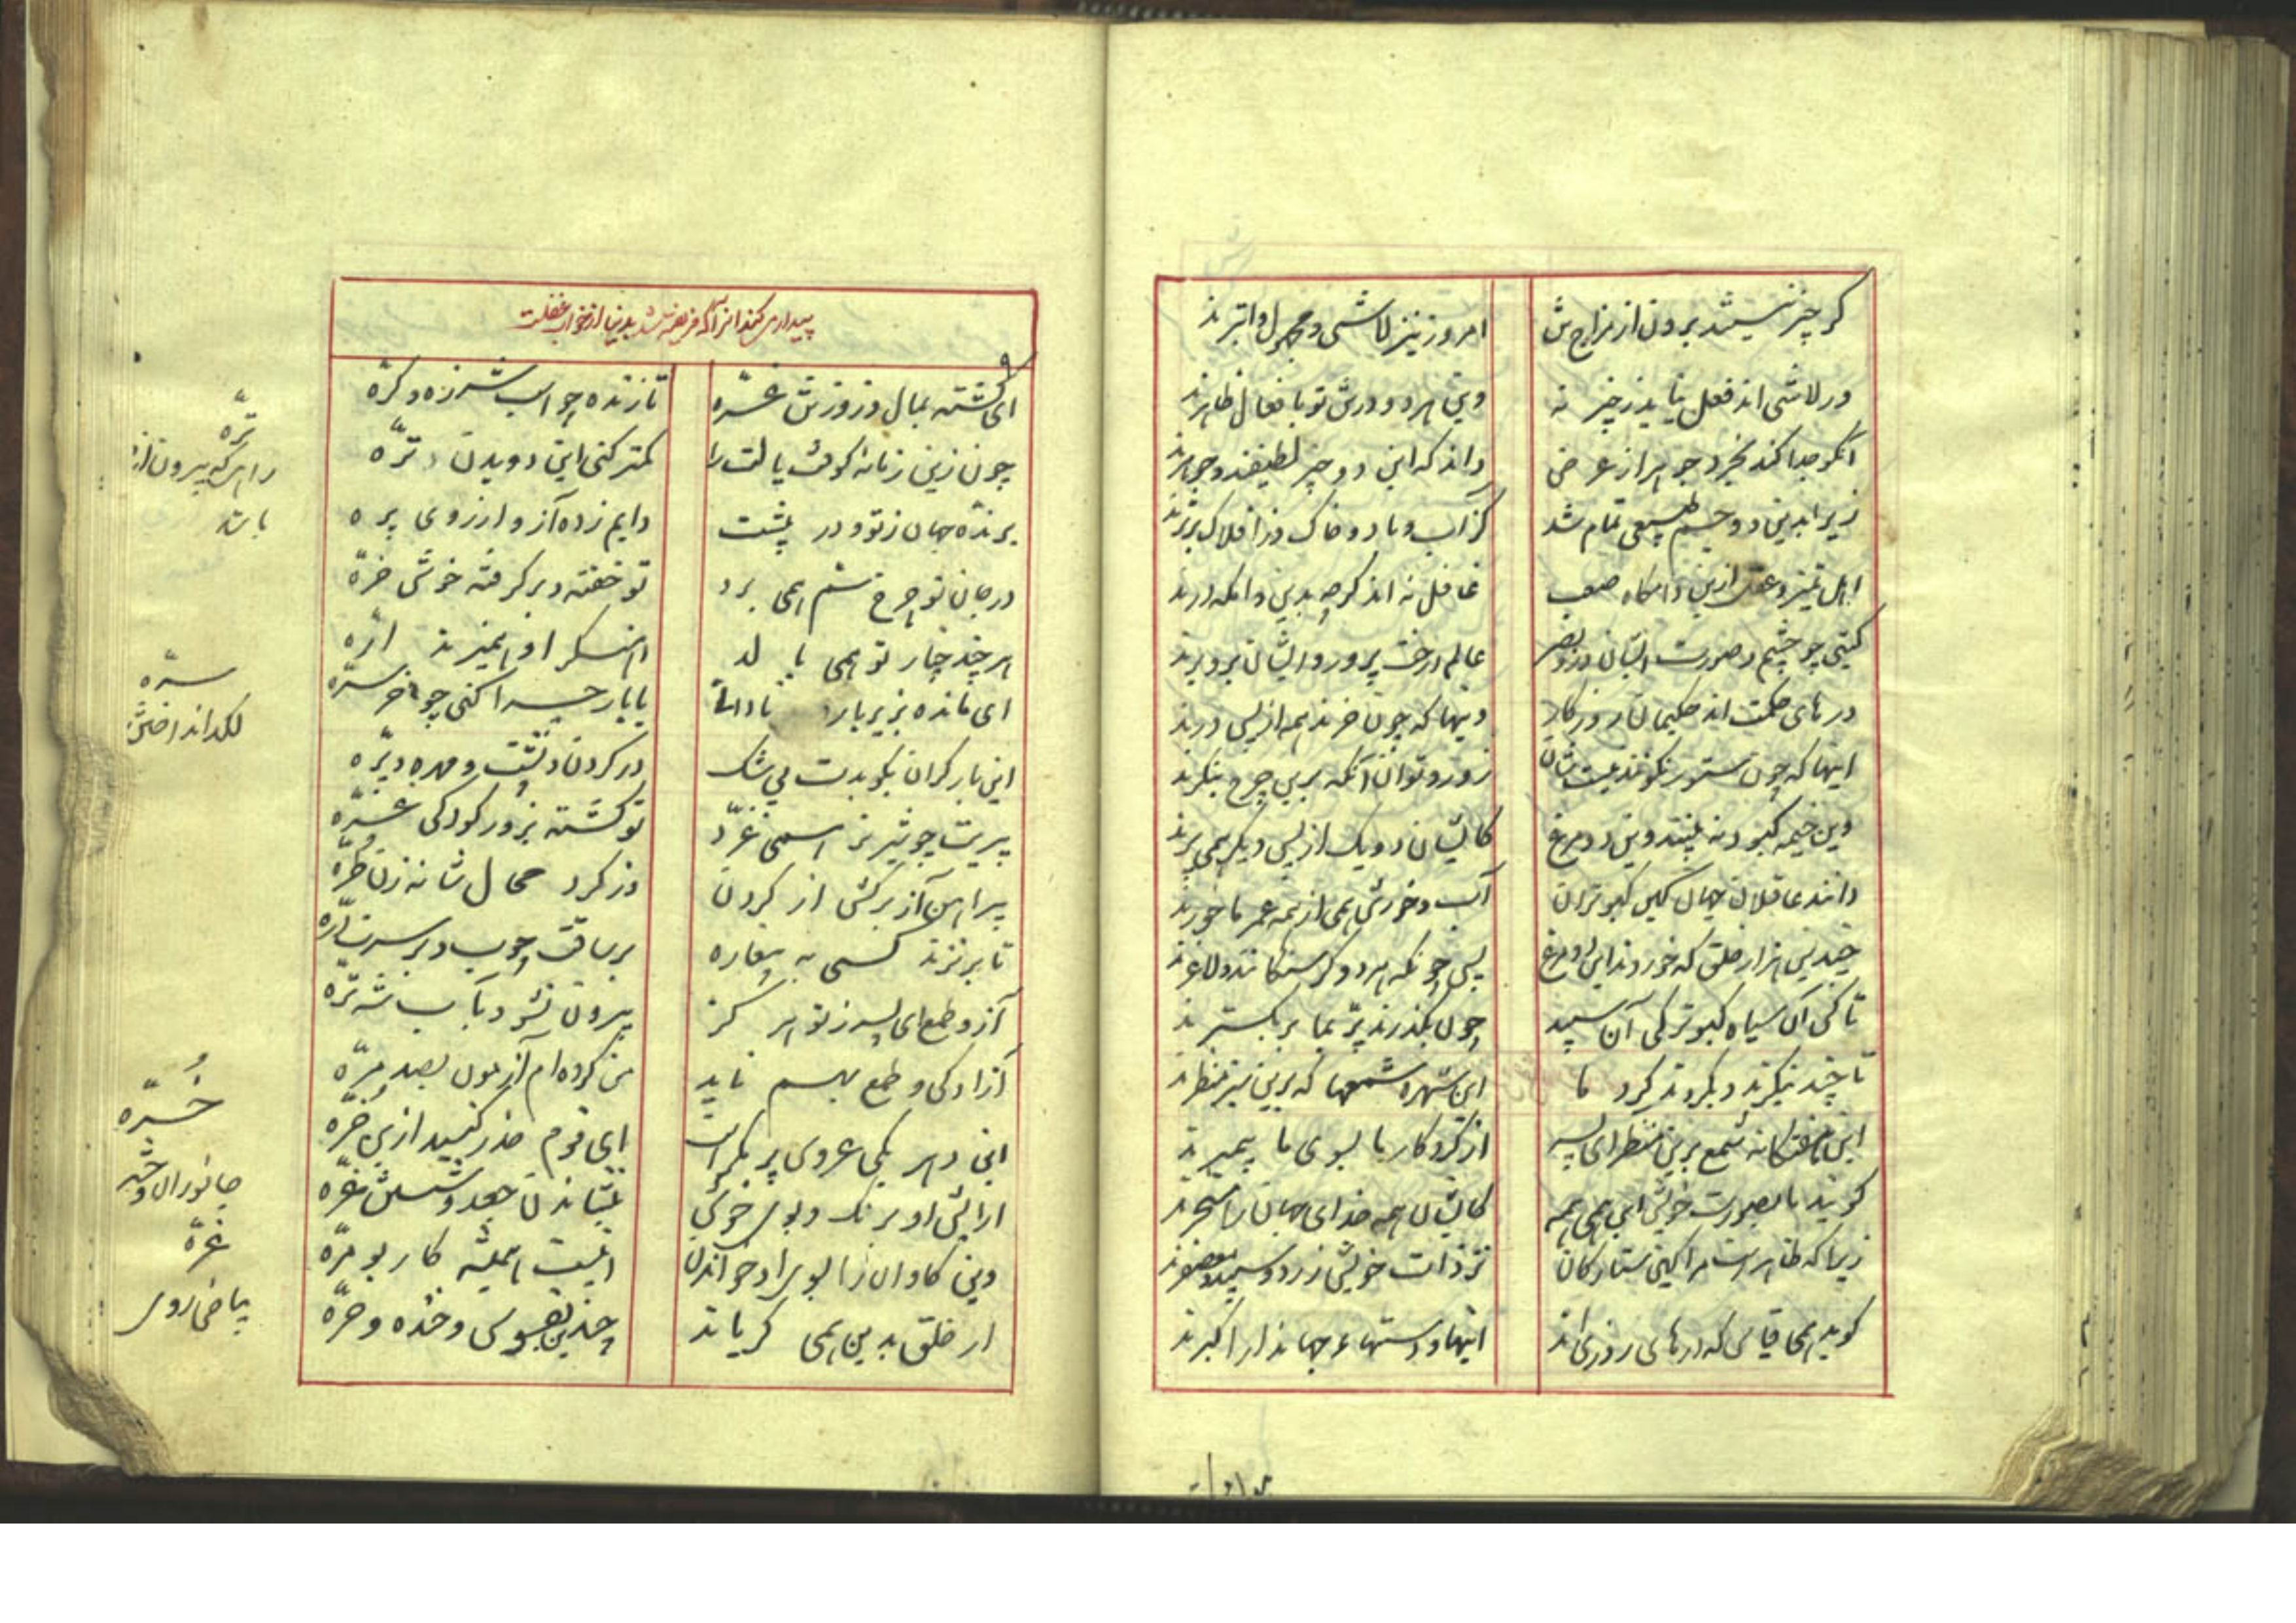 گر چیز نیستند برون از مزاج شان امروز نیز لاشی و مجهول و ابترند
ور لاشی اند فعل نیاید ز چیز نه وین هر دو در تو با فعال ظاهرند
آنکو جدا کند بخرد جوهر از عرض داند که این دو چیز لطیفند و جوهرند
زیرا بدین دو جسم طبیعی تمام شد کز آب و باد و خاک وز افلاک برترند
اهل تمیز و عقل ازین دامگاه صعب غافل نه اند گرچه بدین دامگه درند
گیتی چو چشم و صورت ایشان درو بصر عالم درخت پر بر و ایشان برو برند
درهای حکمت اند حکیمان روزگار وینها که چون خرند همه از پس درند
اینها که چون ستور نگونند نیست شان زور و توان آنکه برین چرخ بنگرند
وین خیمه کبود نه بینند وین دو مرغ کایشان دو یک از پس دیگر همی پرند
دانند عاقلان جهان کین کبوتران آب و خورش همی از همه عمر ما خورند
چندین هزار خلق که خوردند این دو مرغ پس چونکه هر دو گرسنگانند و لاغرند
تا کی آن سیاه کبوتر کی آن سپید چون بگذرند پر بما بر بگسترند
تا چند بنگرند و بگردند گرد ما این شهره شمعها که برین سبز منظرند
این هفتگانه شمع برین منظر ای پسر از کردگار ما بسوی ما پیمبرند
گویند ما بصورت خویش این همی همه کایشان همه خدای جهان را مسخرند
زیرا که ظاهرست مرا کین ستارگان نز ذات خویش زرد و سپید و معصفرند
گوید همی قیاس که درهای روزی اند اینها و دستهاء جهاندار اکبرند
بیدار می کند از خواب غفلت
ای گشته بمال و زور تنش غره تازنده چو اسب شرزه و کره
چون زین زمانه کوفت پالت را کمتر کنی این دویدن و تره
پرنده جهان ز تو و در پشت دایم زده آز و آرزوی پره
در جان تو چرخ شم همی برد تو خفته و بر گرفته خوش خره
هر چند چهار تو همی پالد اره
ای مانده بزیر بار نادانی با بار چرا کنی چو خر سره
این بار گران بکوبدت بی شک در گردن و پشت و مهره و بره
پیریت چو شیر نر همی غرد تو گشته بزور کودکی غره
پیراهن آز برکش از گردن وز گرد محال شانه زن طره
تا بر نزند کسی به بیغاره بر ساقت چوب و بر سرت اره
آز و طمع ای پسر ز تو هرگز بیرون نشود بآب شه تره
آزادگی و طمع بهم ناید من کرده ام آزمون بصد مره
این دهر یکی عروس پر مکر است ای قوم حذر کنید ازین غره
آرایش او برنگ و بوی خوش
وین گاوان را بسوی او خواندن اینست همیشه کار بو مره
ار خلق بدین همی گریاند چندین بفسوس و خنده و هره
تره
راهی که بیرون از
باشد
سره
لگد انداختن
خره
جانوران وحش
غره
بیاضی روی